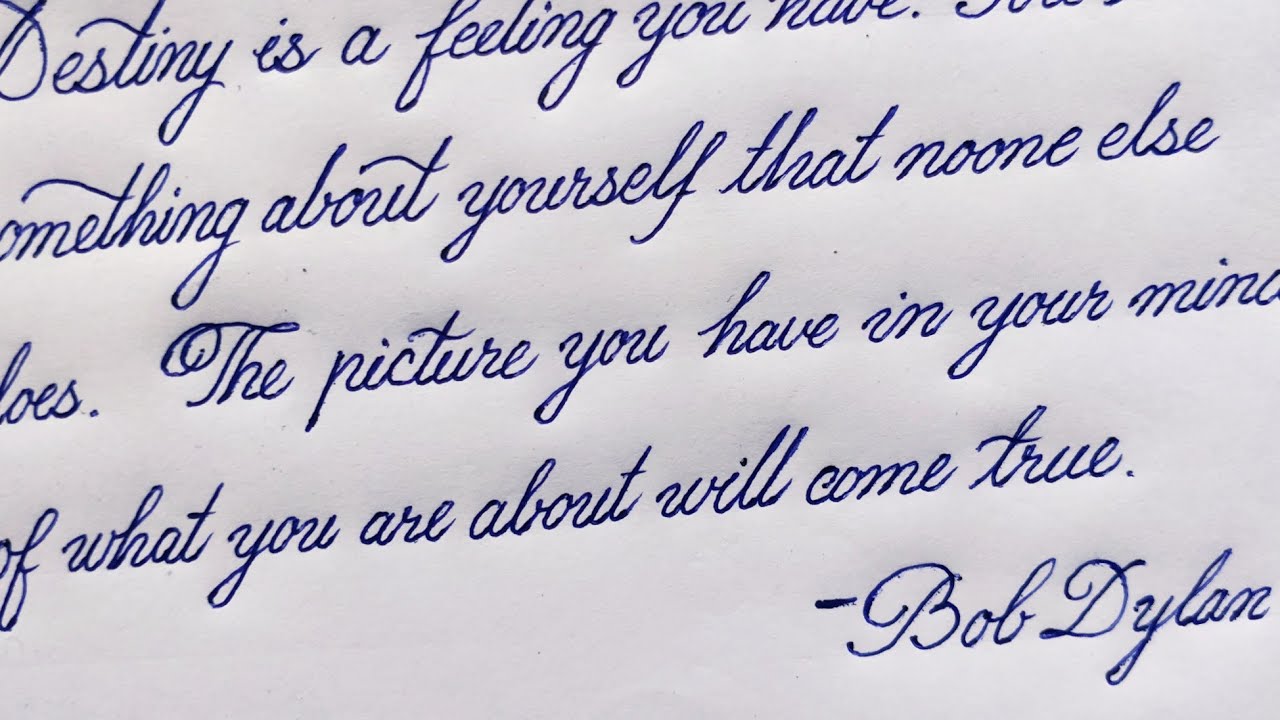 Destiny is a feeling you have.
omething about yourself that noone else
loes. The picture you have in your mind
of what you are about will come true.
-Bob Dylan